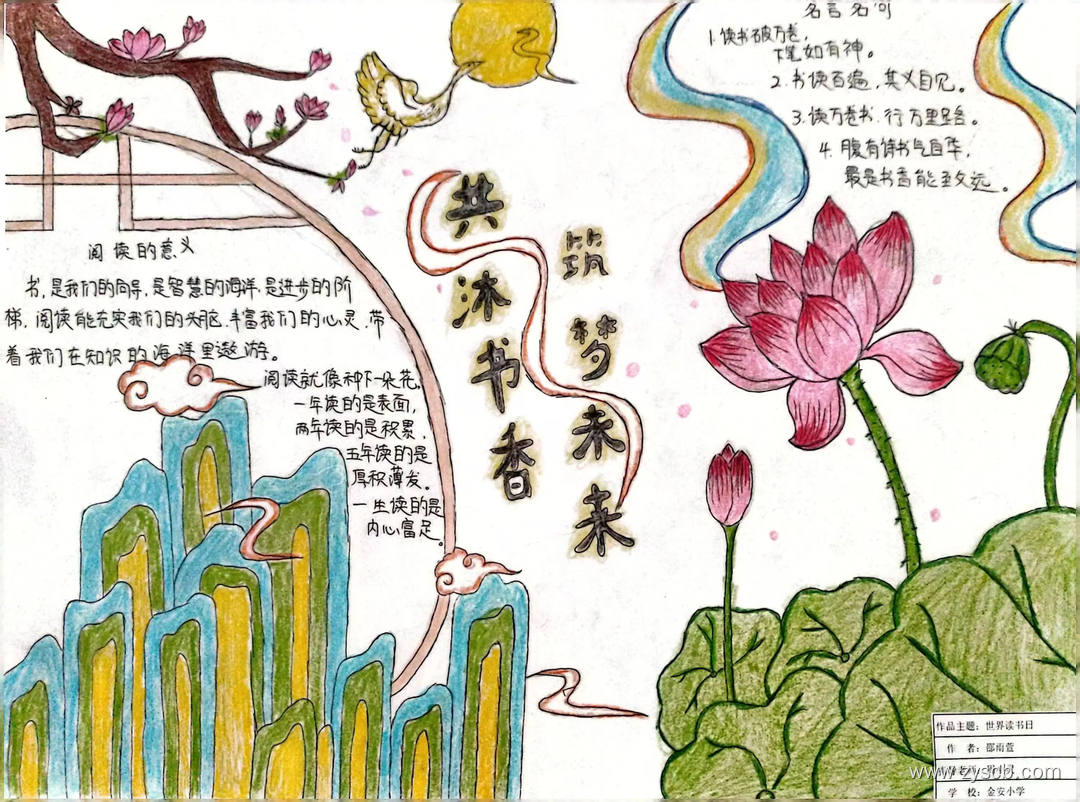 名言名句
1.读书破万卷,
下笔如有神。
2.书读百遍,其义自见。
3.读万卷书.行万里路。
4.腹有诗书气自华,
最是书香能致远。
共沐书香
筑梦未来
阅读的意义
书,是我们的向导,是智慧的海洋.是进步的阶
梯,阅读能充实我们的头脑.丰富我们的心灵,带
着我们在知识的海洋里遨游。
阅读就像种下一朵花,
一年读的是表面,
两年读的是积累,
五年读的是
厚积薄发。
一生读的是
内心富足。
作品主题:世界读书日
作 者:邵雨萱
学 校:金安小学
www.zyscb.com